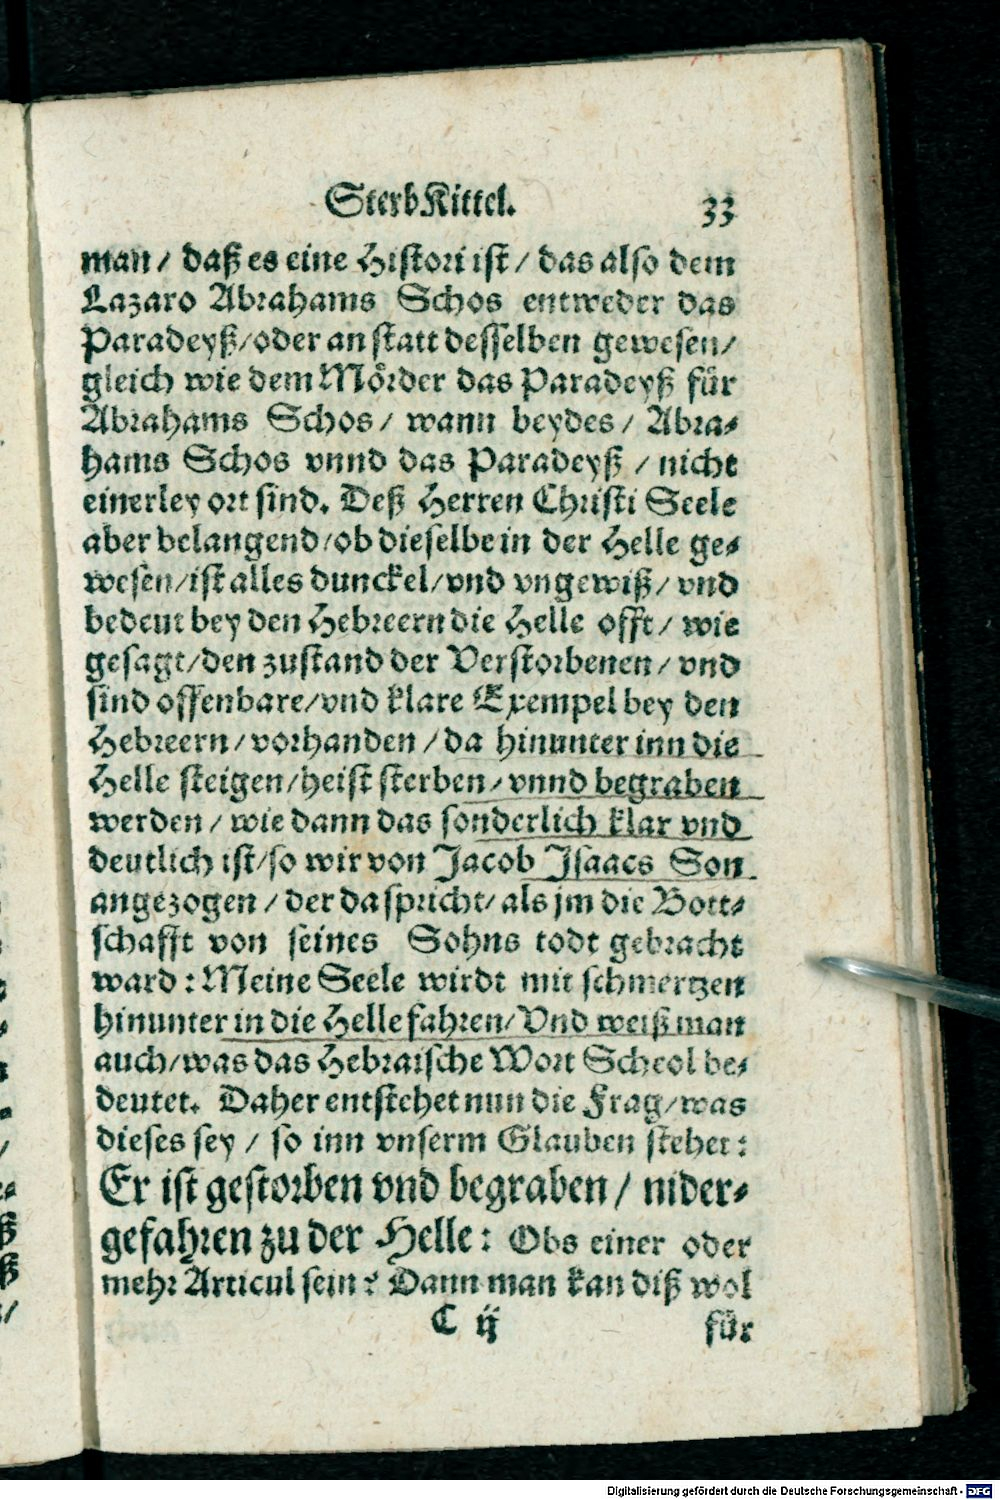 SterbKittel. 33
man / daß es eine Histori ist / das also dem
Lazaro Abrahams Schos entweder das
Paradeyß/oder an statt desselben gewesen/
gleich wie dem Mörder das Paradeyß für
Abrahams Schos / wann beydes / Abra-
hams Schos vnnd das Paradeyß / nicht
einerley ort sind. Deß Herren Christi Seele
aber belangend/ob dieselbe in der Helle ge-
wesen/ist alles dunckel/vnd vngewiß/ vnd
bedeut bey den Hebreern die Helle offt/ wie
gesagt/den zustand der Verstorbenen/ vnd
sind offenbare/vnd klare Exempel bey den
Hebreern/vorhanden / da hinunter inn die
Helle steigen/heist sterben/ vnnd begraben
werden / wie dann das sonderlich klar vnd
deutlich ist/so wir von Jacob Isaacs Son
angezogen / der da spricht/ als jm die Bott-
schafft von seines Sohns todt gebracht
ward : Meine Seele wirdt mit schmertzen
hinunter in die Helle fahren/ Vnd weiß man
auch/was das Hebraische Wort Scheol be-
deutet. Daher entstehet nun die Frag/was
dieses sey / so inn vnserm Glauben stehet:
Er ist gestorben vnd begraben / nider-
gefahren zu der Helle : Obs einer oder
mehr Articul sein? Dann man kan diß wol
C ij für
Digitalisierung gefördert durch die Deutsche Forschungsgemeinschaft - DFG